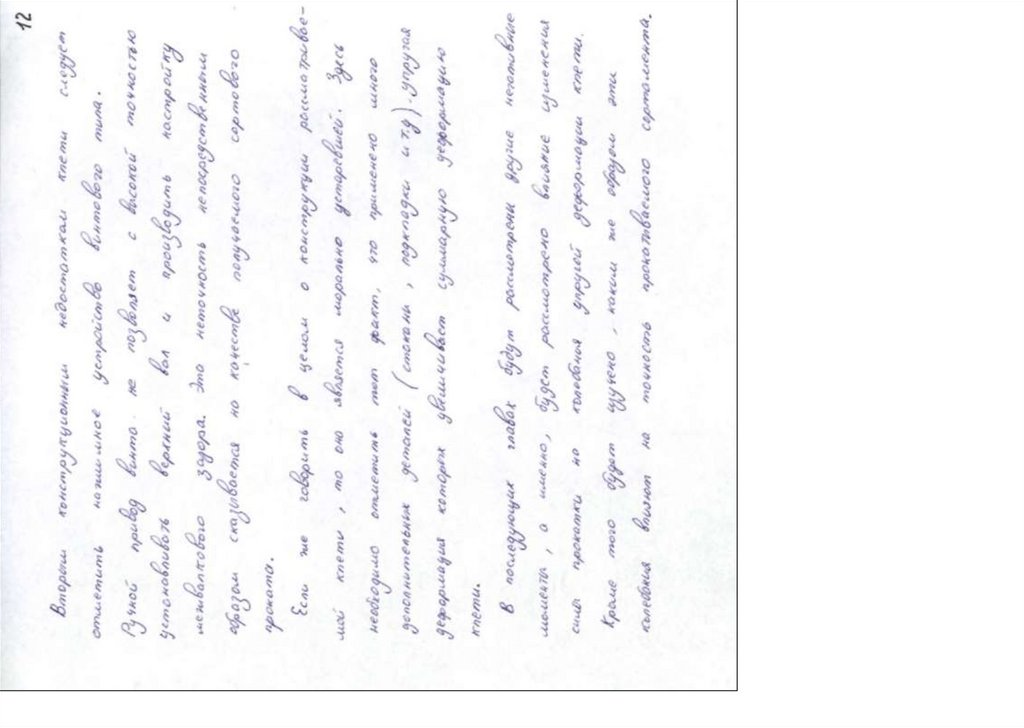 12
Вторым конструкционным недостатком клети следует
отметить нажимное устройство винтового типа.
Ручной привод винта не позволяет с высокой точностью
устанавливать верхний вал и производить настройку
межвалкового зазора. Эта неточность непосредственным
образом сказывается на качестве получаемого сортового
проката.
Если же говорить в целом о конструкции рассматривае-
мой клети, то она является морально устаревшей. Здесь
необходимо отметить тот факт, что применено много
дополнительных деталей (стаканы, подкладки и т.д), упругая
деформация которых увеличивает суммарную деформацию
клети.
В последующих главах будут рассмотрены другие негативные
моменты, а именно, будет рассмотрено влияние изменения
силы прокатки на колебания упругой деформации клети.
Кроме того будет изучено, каким же образом эти
колебания влияют на точность прокатываемого сортамента.